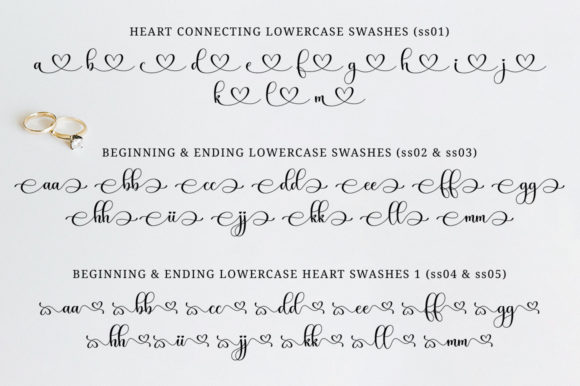 HEART CONNECTING LOWERCASE SWASHES (ss01)
a b c d e f g h i j
k l m
BEGINNING & ENDING LOWERCASE SWASHES (ss02 & ss03)
aa bb cc dd ee ff gg
hh ii jj kk ll mm
BEGINNING & ENDING LOWERCASE HEART SWASHES 1 (ss04 & ss05)
aa bb cc dd ee ff gg
hh ii jj kk ll mm